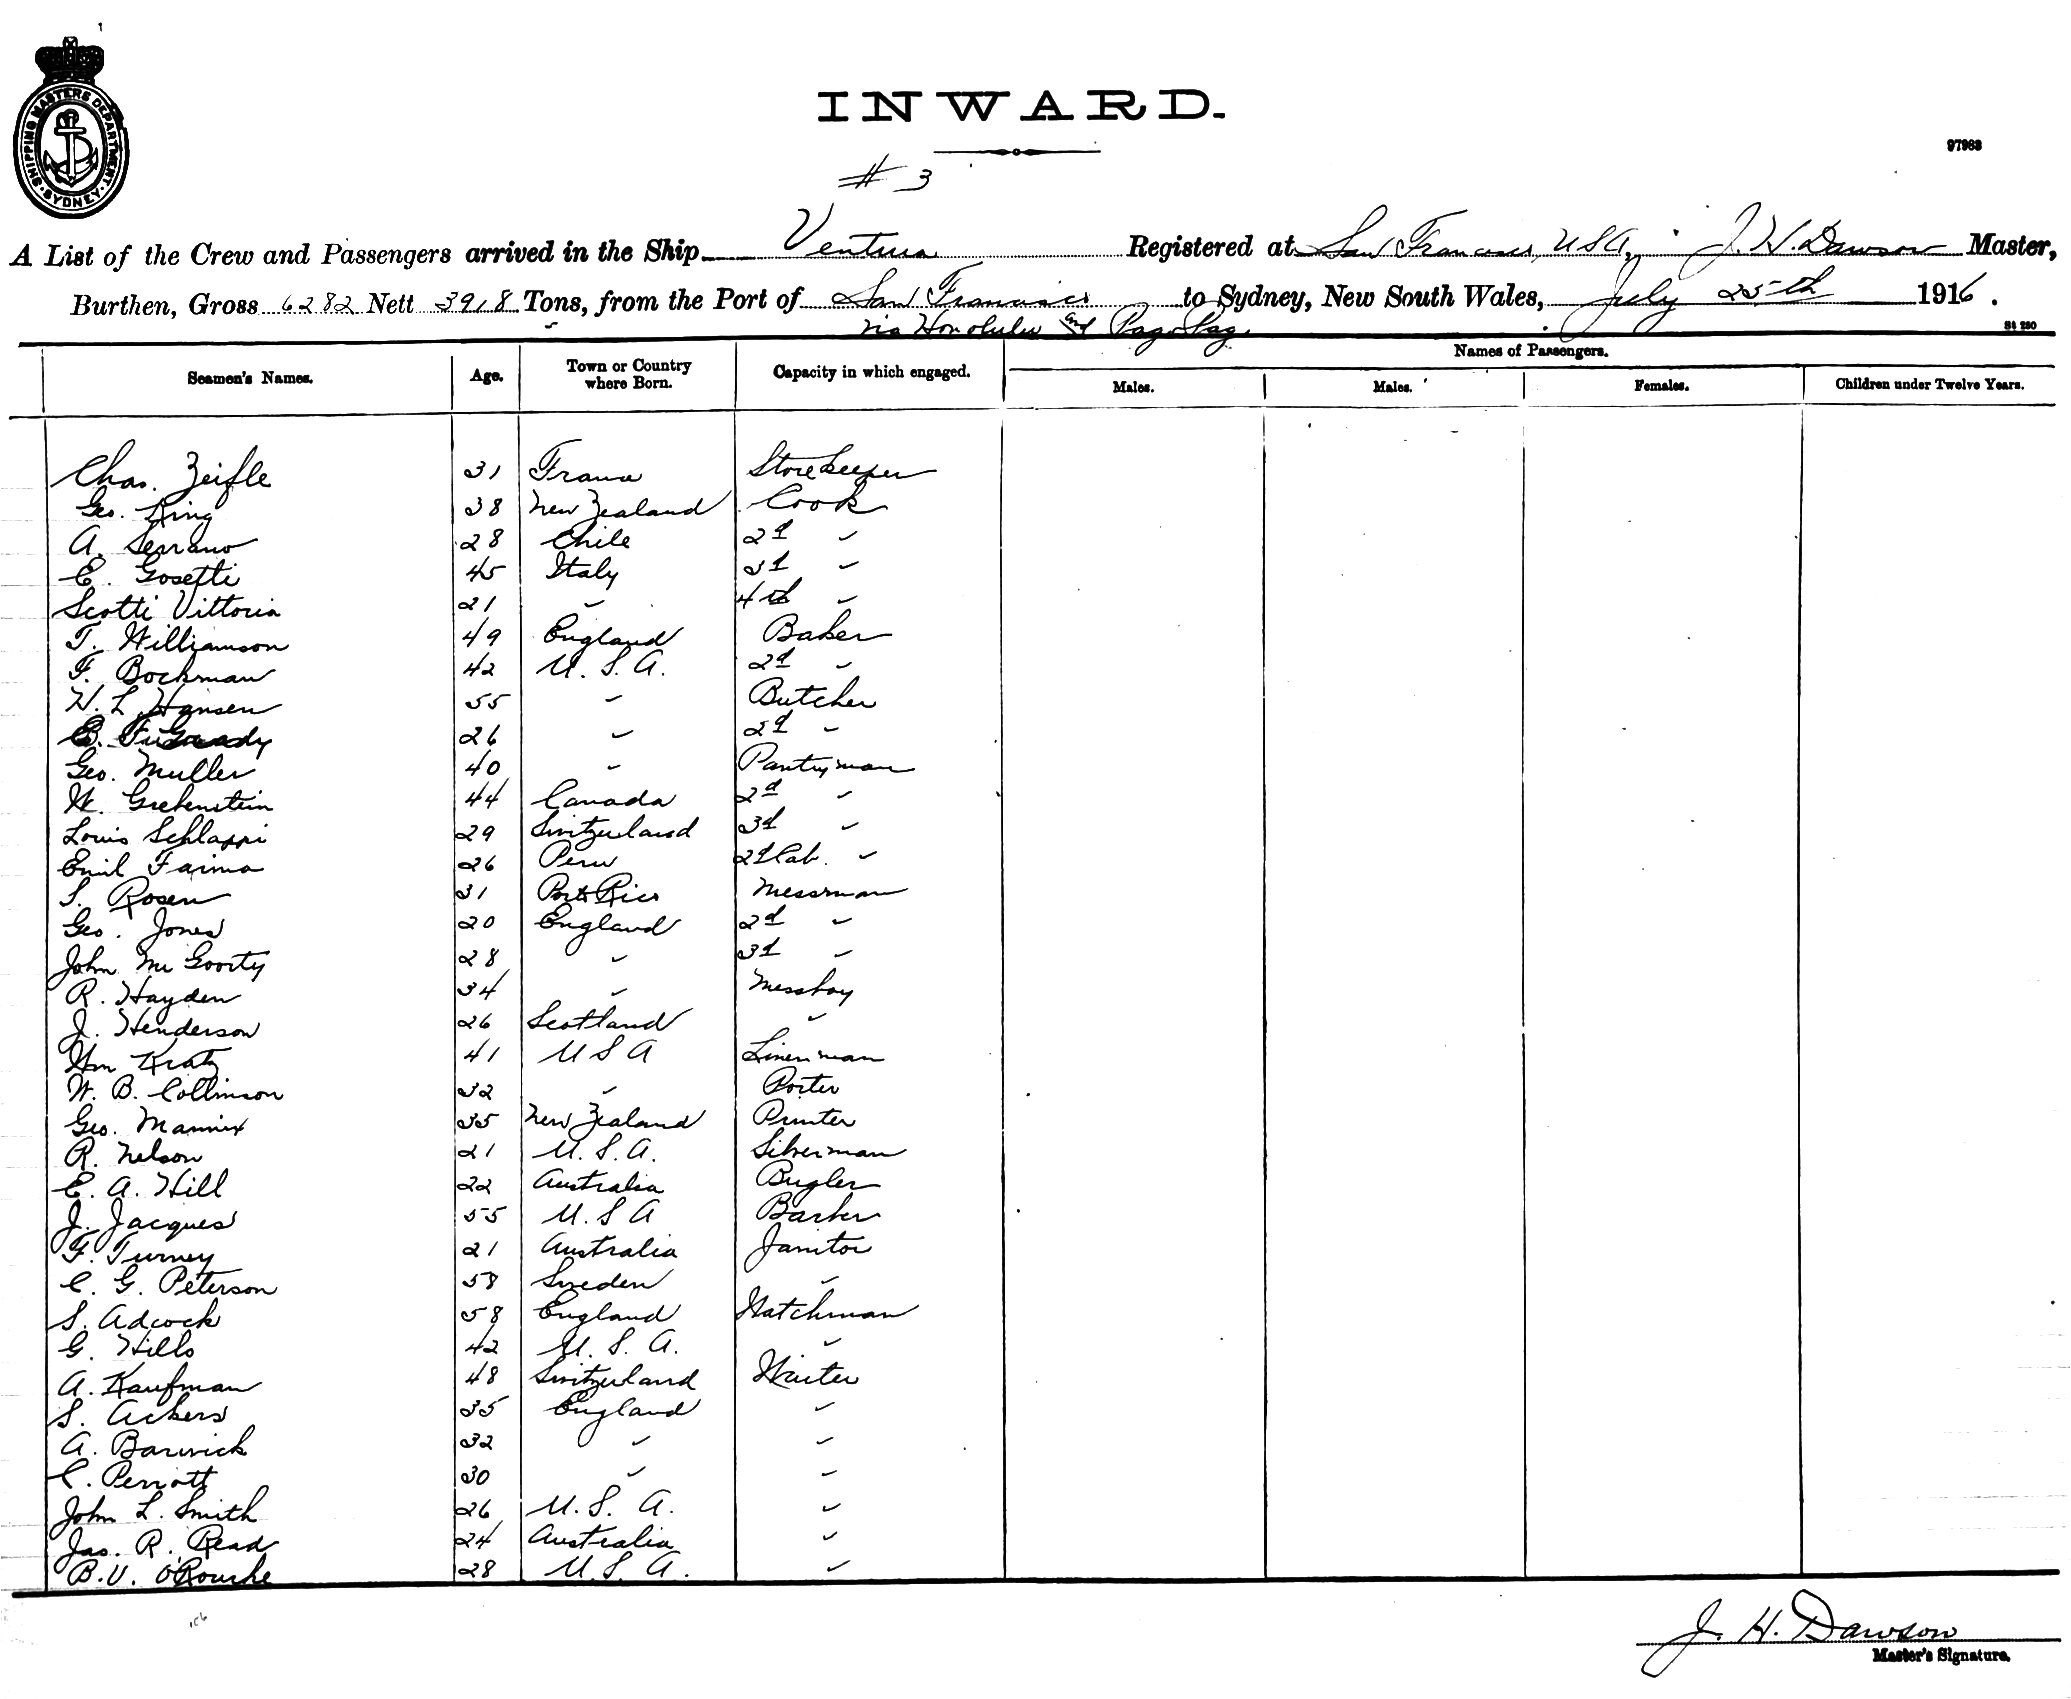 SHIPPING MASTERS DEPARTMENT · SYDNEY ·
INWARD.
97963
# 3
A List of the Crew and Passengers arrived in the Ship Ventura Registered at San Francisco, USA, J. H. Dawson Master,
Burthen, Gross 6282 Nett 3918 Tons, from the Port of San Francisco to Sydney, New South Wales, July 25th 1916.
via Honolulu and Pago Pago
St 280
Seamen's Names. Age. Town or Country where Born. Capacity in which engaged. Names of Passengers.
Males. Males. Females. Children under Twelve Years.
Chas. Zeifle 31 France Storekeeper
Geo. King 38 New Zealand Cook
A. Serrano 28 Chile 2d "
E. Gosetti 45 Italy 3d "
Scotti Vittoria 21 " 4th "
T. Williamson 49 England Baker
F. Bockman 42 U.S.A. 2d "
H. L. Hansen 55 " Butcher
26 " 2d "
Geo. Muller 40 " Pantryman
W. Grebenstein 44 Canada 2d "
Louis Schlappi 29 Switzerland 3d "
Emil Faima 26 Peru 2d Cab. "
S. Rosen 31 Porto Rico Messman
Geo. Jones 20 England 2d "
John McGoorty 28 " 3d "
R. Hayden 34 " Messboy
J. Henderson 26 Scotland "
Wm Kratz 41 USA Linenman
W. B. Collinson 32 " Porter
Geo. Mannix 35 New Zealand Printer
R. Nelson 21 U.S.A. Silverman
E. A. Hill 22 Australia Bugler
J. Jacques 55 U.S.A Barber
F. Turney 21 Australia Janitor
C. G. Peterson 58 Sweden "
S. Adcock 58 England Watchman
G. Hills 42 U.S.A. "
A. Kaufman 48 Switzerland Waiter
S. Ackers 35 England "
A. Barwick 32 " "
C. Perrott 30 " "
John L. Smith 26 U.S.A. "
Jas. R. Read 24 Australia "
B.V. O'Rourke 28 U.S.A. "
J. H. Dawson
Master's Signature.